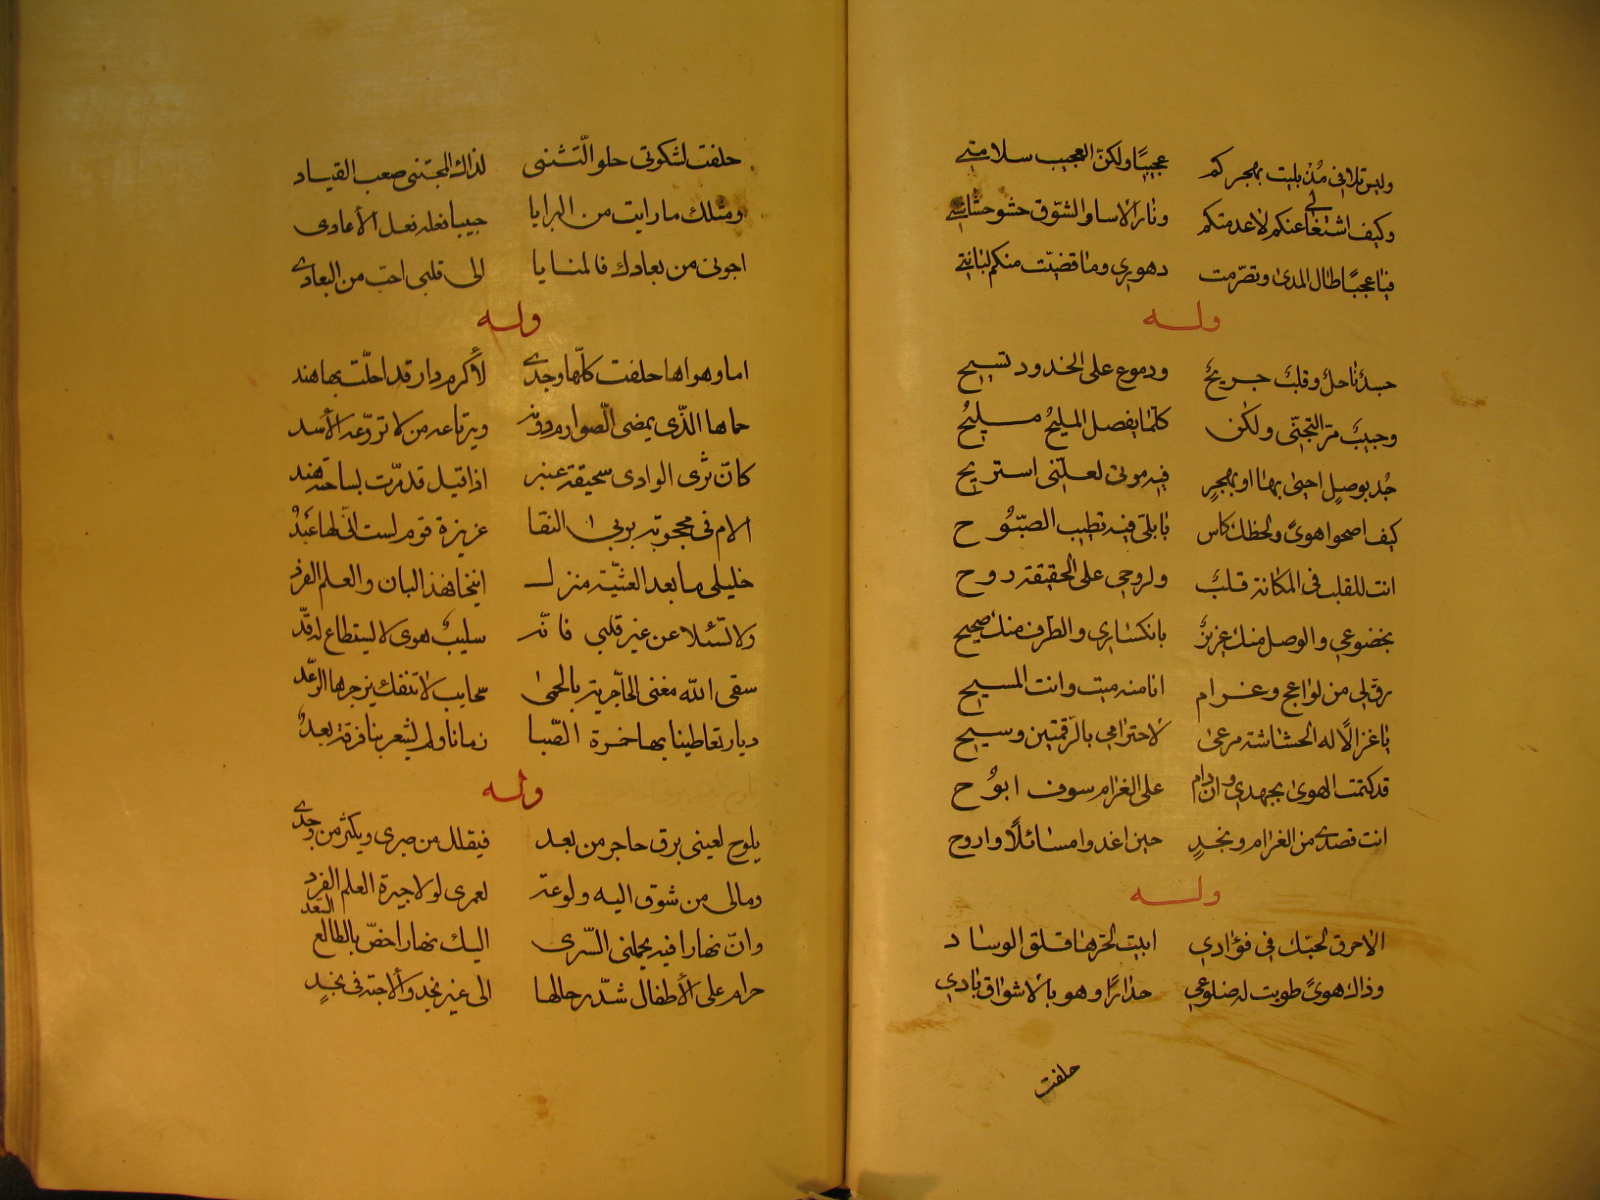 وليس تلافي مُذ بليت بهجركم عجيبًا ولكنّ العجيب سلامتي
وكيف اشتغالي عنكم لا عدمتكم ونار الاسا والشوق حشو حشاشتي
فيا عجبًا طال المدى وتصرّمت دهوري وما قضيت منكم لبانتي
وله
جسدٌ ناحلٌ وقلبٌ جريحٌ ودموع على الخدود تسيح
وحبيبٌ مرّ التجنّي ولكن كلّما يفعل المليحُ مليحُ
جُد بوصلٍ احيى بها او بهجرٍ فيه موتي لعلّني استريح
كيف اصحوا هوىً ولحظك كاس بابلي فيه تطيب الصّبُوح
انت للقلب في المكانة قلبٌ ولروحي على الحقيقة روح
بخضوعي والوصل منك عزيزٌ بانكساري والطرف منك صحيح
رقّ لي من لواعج وغرام انا منه ميت وانت المسيح
يا غزالًا له الحشاشة مرعى لاحترامي بالرقمتين وسيح
قد كتمت الهوى بجهدي وان دام على الغرام سوف ابوُح
انت قصدي من الغرام ونجدٍ حين اغدوا مسائلًا واروح
وله
الاحرق لحبّك في فؤادي ابيت لحرّها قلق الوساد
وذاك هوىً طويت له ضلوعي حذارًا وهو بالاشواق بادي
حلفت
حلفت لشكوتي حلو التّثنى لذاك المجتنى صعب القياد
ومثلك ما رايت من البرايا حبيبا فعله فعل الأعادى
اجونى من بعادك فالمنايا الى قلبي احبّ من البعادي
وله
اما وهواها حلفت كلّها وجدي لأكرم دار قد احلّت بها هند
حماها الذّى يمضى الصّوارم دونه ويرتاعه من لا تروّعه الأسد
كانّ ثرى الوادى سحيقة عنبر اذا قيل قد مرّت بساحته هند
الام في محجوبة بربي النقا عزيزة قوم لست انّى لها عَبدُ
خليلى ما بعد العشيّة منزل انيخا فهذا البان والعلم الفرد
ولا تسئلا عن غير قلبي فانّه سليبُ هوى لا يستطاع له ردّ
سقى الله مغنى الحاجرية بالحمى سحايب لا تنفك يزجرها الرّعد
ديار تعاطينا بها خمرة الصّبا زمانا ولم تشعر بنا فرقة بعدُ
وله
يلوح لعينى برق حاجر من بعد فيقلل من صبرى ويكثر من وجدي
ومالى من شوق اليه ولوعة لعمرى لولا جيرة العلم الفرد
وانّ نهارا فيه يحملنى السّرى اليك نهار احضّ بالطالع السّعد
حرام على الأطفال شدّ رحالها الى غير نجد والأحبّة في نجدٍ